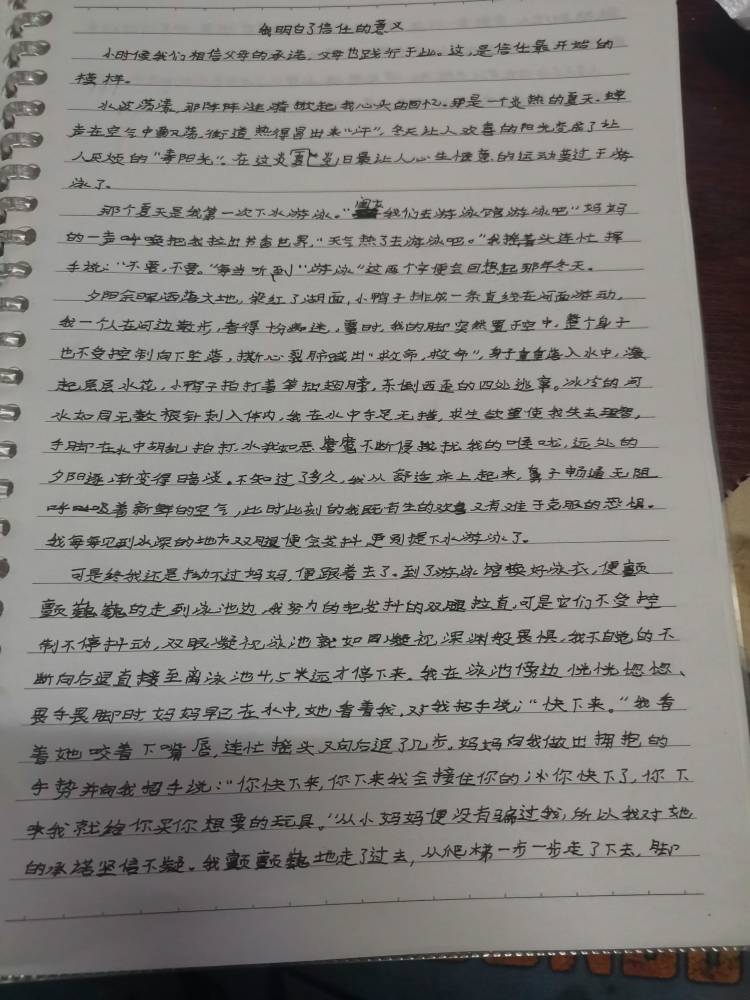 我明白了信任的意义
小时候我们相信父母的承诺,父母也践行于此。这,是信任最开始的
模样。
水波荡漾,那阵阵涟漪掀起我心头的回忆。那是一个炎热的夏天。蝉
声在空气中飘荡,街道热得冒出来“汗”,冬天让人欢喜的阳光变成了让
人厌烦的“毒阳光”。在这炎夏炎日最让人心生惬意的运动莫过于游
泳了。
那个夏天是我第一次下水游泳。“闺女我们去游泳馆游泳吧”妈妈
的一声呼唤把我拉出书香世界,“天气热了去游泳吧。”我摇着头连忙挥
手说:“不要,不要。”每当听到“游泳”这两个字便会回想起那年冬天。
夕阳余晖洒落大地,染红了湖面,小鸭子排成一条直线在河面游动,
我一个人在河边散步,看得十分痴迷,霎时,我的脚突然置于空中,整个身子
也不受控制向下坠落,撕心裂肺喊出“救命,救命”,身子重重落入水中,溅
起层层水花,小鸭子拍打着笨拙翅膀,东倒西歪的四处逃窜。冰冷的河
水如同无数根针刺入体内,我在水中手足无措,求生欲望使我失去理智,
手脚在水中胡乱拍打,水犹如恶魔不断侵扰我的喉咙,远处的
夕阳逐渐变得暗淡。不知过了多久,我从舒适床上起来,鼻子畅通无阻
呼吸着新鲜的空气,此时此刻的我既有生的欢喜又有难于克服的恐惧。
我每每见到水深的地方双腿便会发抖更别提下水游泳了。
可是终我还是拗不过妈妈,便跟着去了。到了游泳馆换好泳衣,便颤
颤巍巍的走到泳池边,我努力的把发抖的双腿拉直,可是它们不受控
制不停抖动,双眼凝视泳池就如同凝视深渊般畏惧,我不自觉的不
断向后退直接至离泳池4,5米远才停下来。我在泳池傍边恍恍惚惚、
畏手畏脚时,妈妈早已在水中,她看着我,对我招手说;“快下来。”我看
着她咬着下嘴唇,连忙摇头又向后退了几步。妈妈向我做出拥抱的
手势并向我招手说:“你快下来,你下来我会接住你的;你快下了,你下
来我就给你买你想要的玩具。”从小妈妈便没有骗过我,所以我对她
的承诺坚信不疑。我颤颤巍地走了过去,从爬梯一步一步走了下去,脚